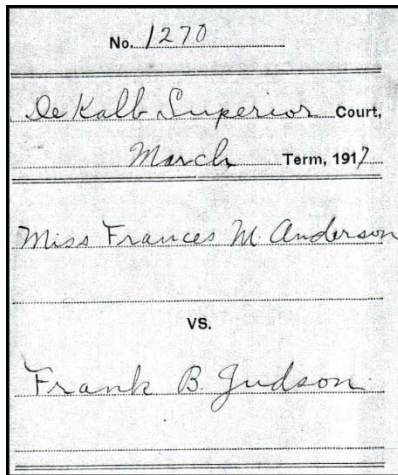 No. 1270
De Kalb Superior Court,
March Term, 1917
Miss Frances M Anderson
VS.
Frank B. Judson